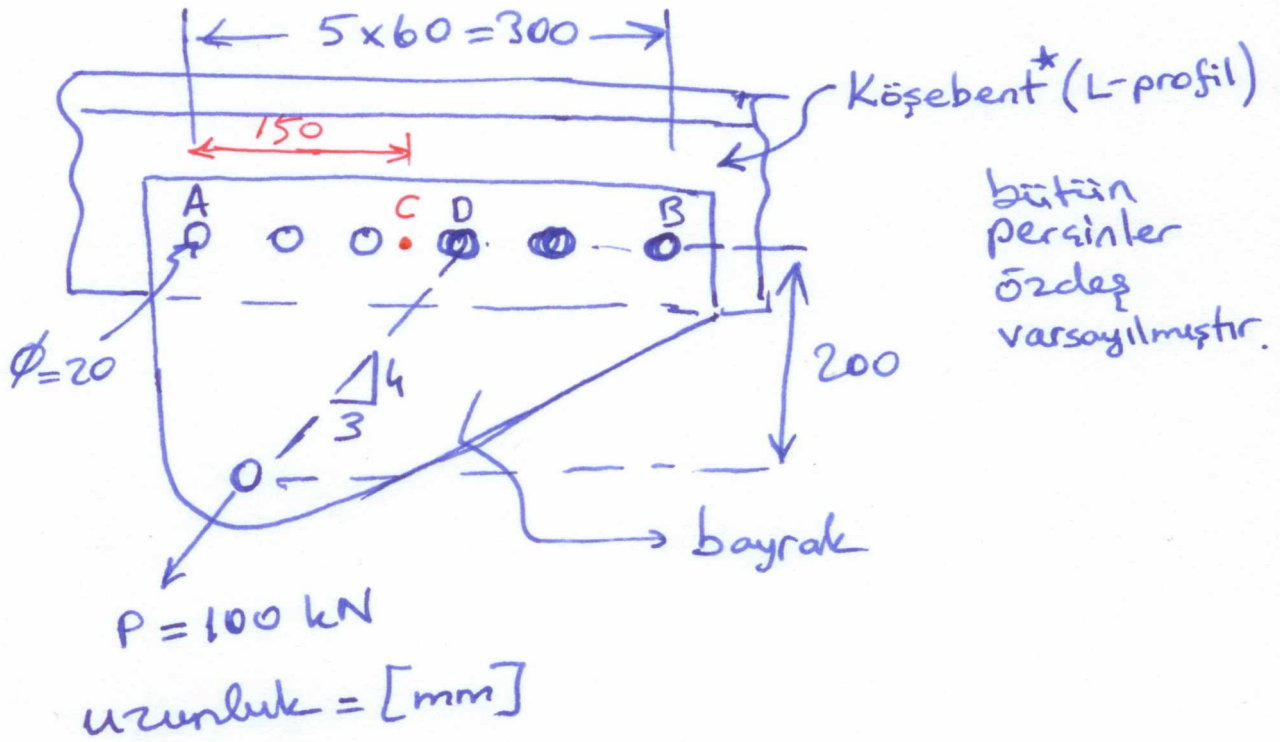 5x60=300
Köşebent* (L-profil)
150
A C D B
bütün
perçinler
özdeş
varsayılmıştır.
Ø=20
4
3
200
bayrak
P = 100 kN
uzunluk = [mm]